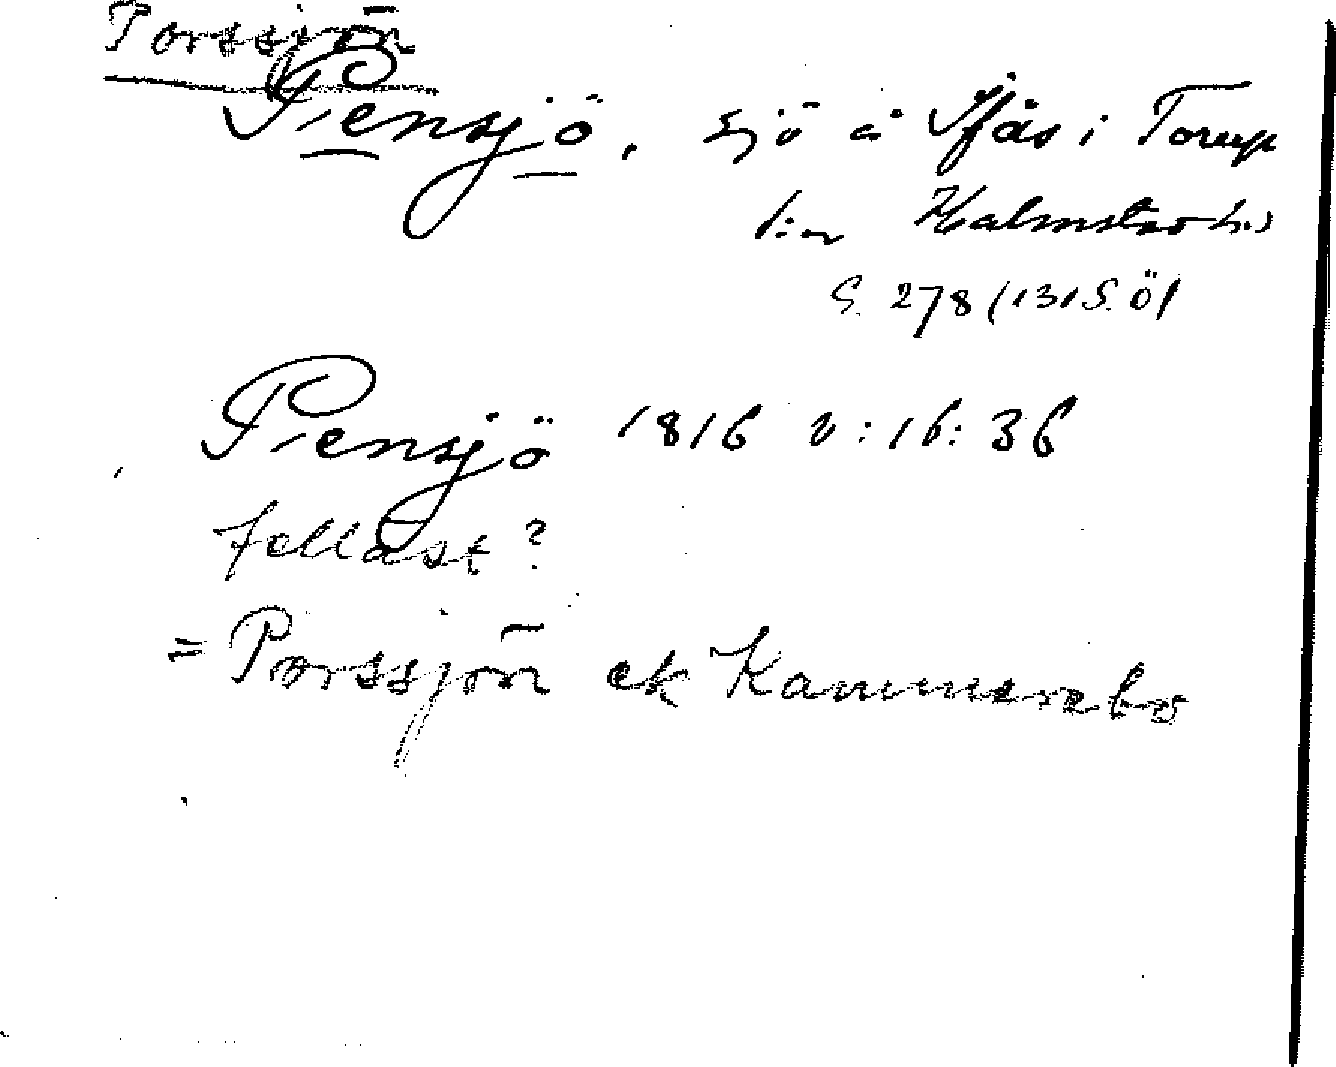 Porssjön
Pensjö, sjö å Ifås i Torup
s:n Halmstads h:d
S. 278 (131 S. Ö)
Pensjö 1816 v:16:36
felläst?
= Porssjön ek Kammarebo